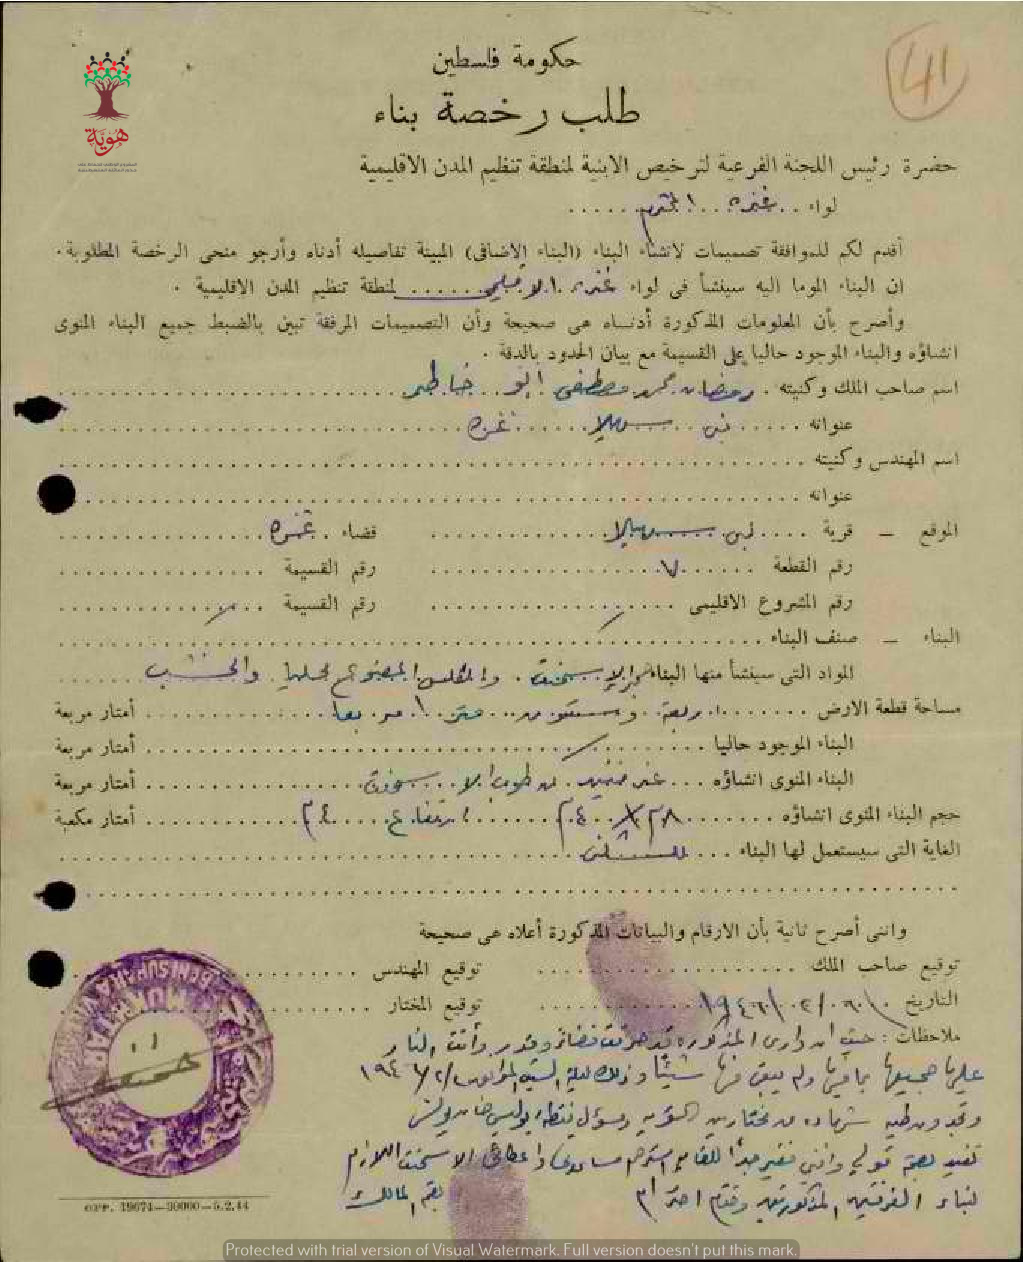 41
هوية
حكومة فلسطين
طلب رخصة بناء
حضرة رئيس اللجنة الفرعية لترخيص الابنية لمنطقة تنظيم المدن الاقليمية
لواء .. غزه .. المحترم ......
أقدم لكم للموافقة تصميمات لانشاء البناء (البناء الاضافى) المبينة تفاصيله أدناه وأرجو منحى الرخصة المطلوبة.
ان البناء الموما اليه سينشأ فى لواء غزه الاقليمي ...... لمنطقة تنظيم المدن الاقليمية .
وأصرح بأن المعلومات المذكورة أدناه هى صحيحة وأن التصميمات المرفقة تبين بالضبط جميع البناء المنوى
انشاؤه والبناء الموجود حاليا على القسيمة مع بيان الحدود بالدقة .
اسم صاحب الملك وكنيته . رمضان محمد مصطفى ابو خاطر
عنوانه ..... بني سهيلا ...... غزه
اسم المهندس وكنيته
عنوانه
الموقع – قرية .... بني سهيلا ...... قضاء . غزه
رقم القطعة ...... ٧ ...... رقم القسيمة
رقم المشروع الاقليمى ...... رقم القسيمة
البناء – صنف البناء
المواد التى سينشأ منها البناء الاسمنت . والطلس المصنوع محليا . والخشب
مساحة قطعة الارض ....... اربعة وستون متر مربعا ...... أمتار مربعة
البناء الموجود حاليا ...... أمتار مربعة
البناء المنوى انشاؤه ... غرفتين من طوب الاسمنت ...... أمتار مربعة
حجم البناء المنوى انشاؤه ...... ارتفاع ... ٤م ...... أمتار مكعبة
الغاية التى سيستعمل لها البناء ... للسكن
وانى أصرح ثانية بأن الارقام والبيانات المذكورة أعلاه هى صحيحة
توقيع صاحب الملك ...... توقيع المهندس
التاريخ ...... ١٩٤٦ ...... توقيع المختار
ملاحظات : حيث ان داري المذكوره قد حرقت قضاء وقدر وأتت النار
عليها جميعها بما فيها ولم يبق فيها شيئا وذلك ليلة السبت الموافق ٢/ ١٩٤٦
وتجدون طيه شهاده من مختارين القريه ومسؤل نقطة بوليس خانيونس
تفيد بصحة قولي وانني فقير جدا للغايه استرحم مساعدتي واعطائي الاسمنت اللازم
لبناء الغرفتين المذكورتين وختم احترام
بصمة المالك
BENI SUHEILA
MUKHTAR
GPP. 19674—30000—5.2.44
Protected with trial version of Visual Watermark. Full version doesn't put this mark.